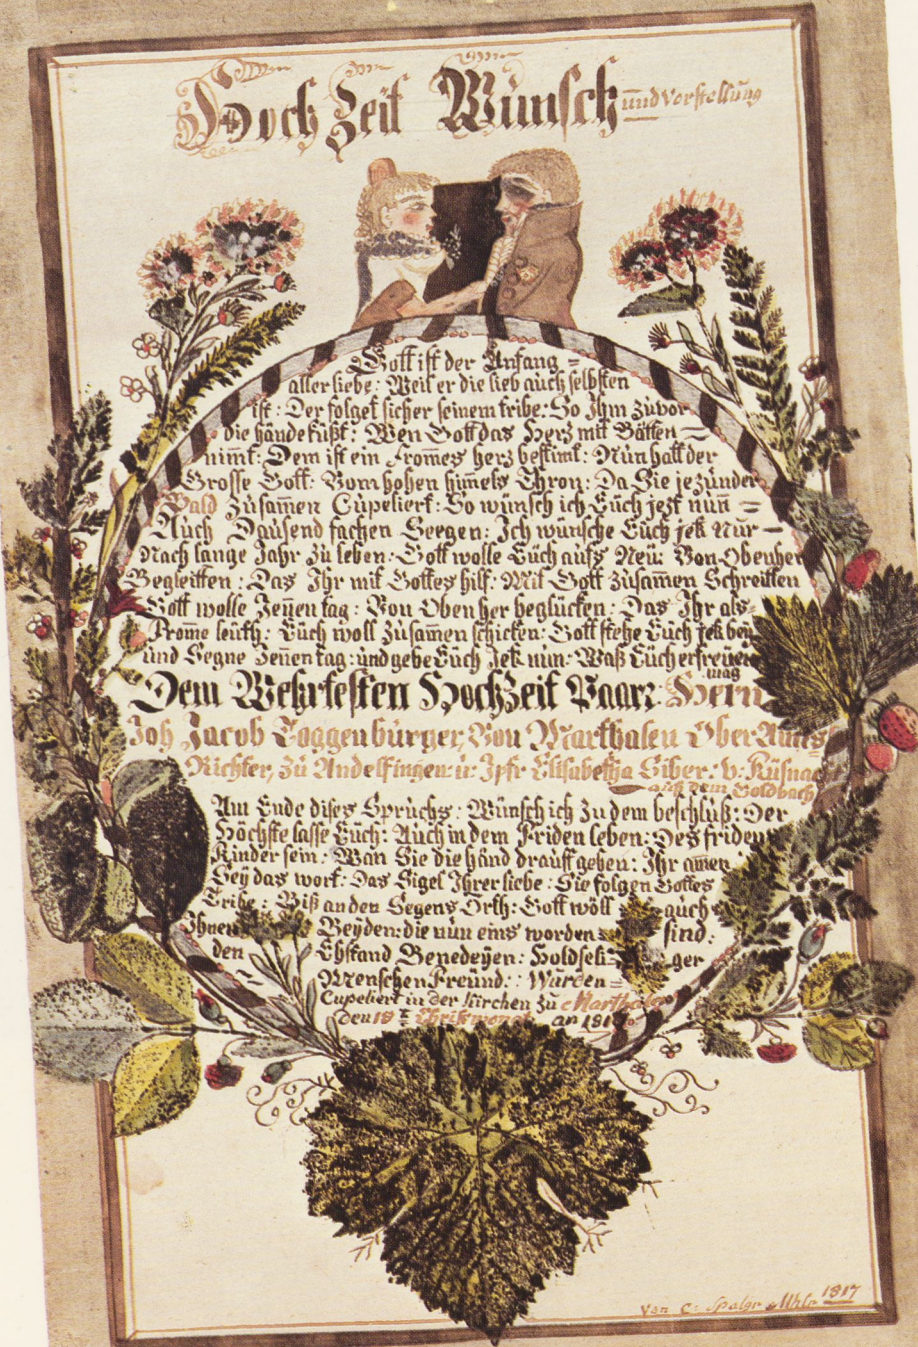 Hoch Zeit Wünsch und Vorstellung
Gott ist der Anfang =
aller liebe: Weil er die lieb auch selbsten
ist: Der folget sicher seinem tribe: So Ihm zuvor
die hände küßt: Wen Gott das Herz mit Bätten =
nim̅t: Dem ist ein from̅es herz bestimt: Nun hatt der
Grosse Gott: Vom hohen him̅els Thron: Da Sie jezünder
Bald Zusam̅en Cupeliert: So wünsch ich Eüch jezt nun̅ =
Auch Dausend fachen Seegen: Ich wünsche Eüch jek Nur =
Nach lange Jahr zu leben: Gott wolle Eüch aufs Neü: Von Obenher
Begleitten: Das Ihr mit Gottes hilf: Mit Gott Zusam̅en Schreitten
Gott wolle Jenen tag: Von Oben her beglücken: Das Ihr als=
Frome̅ leüth: Eüch woll Zusam̅en schicken: Gott stehe Eüch jek bey
und Segne Jen̅en tag: und gebe Eüch Jek nun: Waß Eüch erfreüen
mag
Dem Wehrtesten HochZeit Paar: Hern
Joh Jacob Toggenbürger, Von Marthalen Ober Amts
Richter, zu Andelfingen u: Jpfr Elisabetha Siber: v: Küsnacht
auß dem Goldbach
Am Ende dises Spruchs: Wünsch ich Zu dem beschluß: Der
Höchste lasse Eüch: Auch in dem Friden leben: Des friden
Kinder sein: Wan Sie die händ drauff geben: Ihr amen
Sey das wort: Das Sigel Ihrer liebe: Sie folgen Gottes
Tribe: Biß an den Segens Orth: Gott wöll auch
Ihnen Beyden: die nun eins worden sind:
den Ehstand Benedeyen: Holdseli= ger
Menschen Freünd: Würden =
Cupeliert in der Kirchen zu Marthalen
den 18 Christmonat an 1817
Von C: 1817